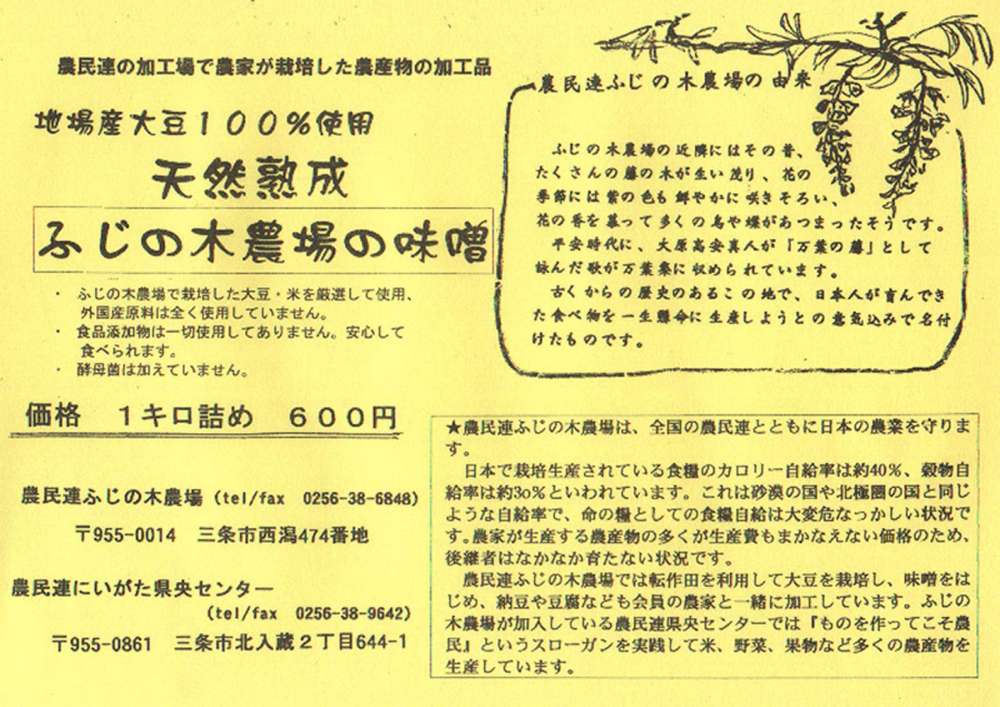 農民連の加工場で農家が栽培した農産物の加工品
地場産大豆１００％使用
天然熟成
ふじの木農場の味噌
・ ふじの木農場で栽培した大豆・米を厳選して使用、
外国産原料は全く使用していません。
・ 食品添加物は一切使用してありません。安心して
食べられます。
・ 酵母菌は加えていません。
価格　１キロ詰め　６００円
農民連ふじの木農場（tel/fax　0256-38-6848）
〒955-0014　三条市西潟474番地
農民連にいがた県央センター
（tel/fax　0256-38-9642）
〒955-0861　三条市北入蔵２丁目644-1
農民連ふじの木農場の由来
ふじの木農場の近隣にはその昔、
たくさんの藤の木が生い茂り、花の
季節には紫の色も鮮やかに咲きそろい、
花の香を慕って多くの鳥や蝶があつまったそうです。
平安時代に、大原高安真人が「万葉の藤」として
詠んだ歌が万葉集に収められています。
古くからの歴史のあるこの地で、日本人が育んでき
た食べ物を一生懸命に生産しようとの意気込みで名付
けたものです。
★農民連ふじの木農場は、全国の農民連とともに日本の農業を守りま
す。
日本で栽培生産されている食糧のカロリー自給率は約40％、穀物自
給率は約3o％といわれています。これは砂漠の国や北極圏の国と同じ
ような自給率で、命の糧としての食糧自給は大変危なっかしい状況で
す。農家が生産する農産物の多くが生産費もまかなえない価格のため、
後継者はなかなか育たない状況です。
農民連ふじの木農場では転作田を利用して大豆を栽培し、味噌をは
じめ、納豆や豆腐なども会員の農家と一緒に加工しています。ふじの
木農場が加入している農民連県央センターでは『ものを作ってこそ農
民』というスローガンを実践して米、野菜、果物など多くの農産物を
生産しています。